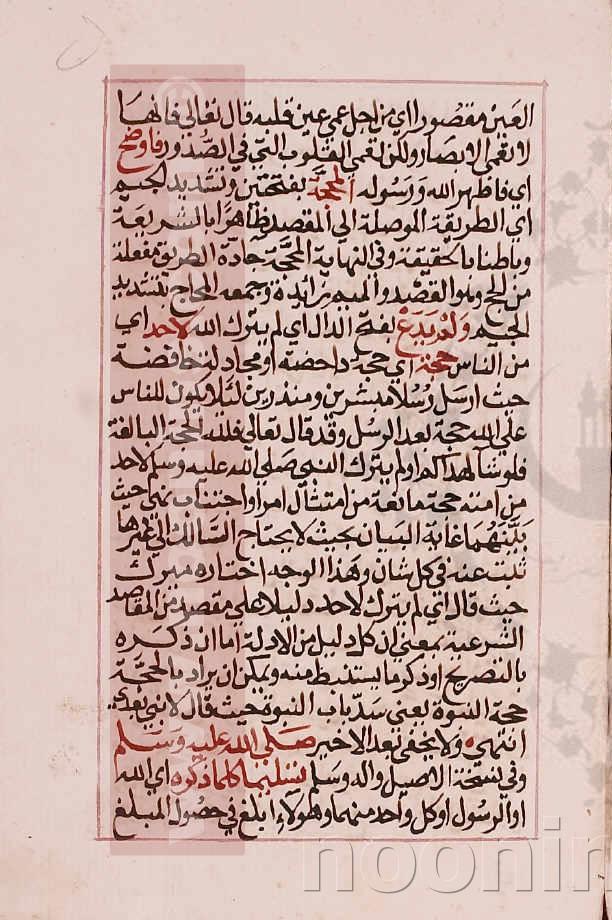 العين مقصورا اي من اجل عمي عين قلبه قال تعالي فانها
لا تعمي الابصار ولكن تعمي القلوب التي في الصدور فاوضح
اي فاظهر الله ورسوله المحجة بفتحتين وتشديد الجيم
اي الطريقة الموصلة الي المقصد ظاهرا بالشريعة
وباطنا بالحقيقة وفي النهاية المحجة جادة الطريق مفعلة
من الحج وهو القصد والميم زائدة وجمعه المحاج بتشديد
الجيم ولم يدع بفتح الدال اي لم يترك الله لاحد اي
من الناس حجة اي حجة داحضة او مجادلة خافضة
حيث ارسل رسلا مبشرين ومنذرين لئلا يكون للناس
علي الله حجة بعد الرسل وقد قال تعالي فلله الحجة البالغة
فلو شا لهداكم او لم يترك النبي صلي الله عليه وسلم لاحد
من امته حجة مانعة من امتثال امرا واجتناب نهي حيث
بينهما غاية البيان بحيث لا يحتاج السالك الي غيرها
ثبت عنه في كل شان وهذا الوجه اختاره ميرك
حيث قال اي لم يترك لاحد دليلا علي مقصد من المقاصد
الشرعية بمعني ان كل دليل من الادلة اما ان ذكره
بالتصريح او ذكر ما يستنبط منه ويمكن ان يراد بالحجة
حجة النبوة يعني سد باب النبوة حيث قال لا نبي بعدي
انتهي ولا يخفي بعد الاخير صلي الله عليه وسلم
وفي نسخة الاصيل واله وسلم تسليما كلما ذكره اي الله
او الرسول او كل واحد منهما وهولاء ابلغ في حصول المبلغ
noonin